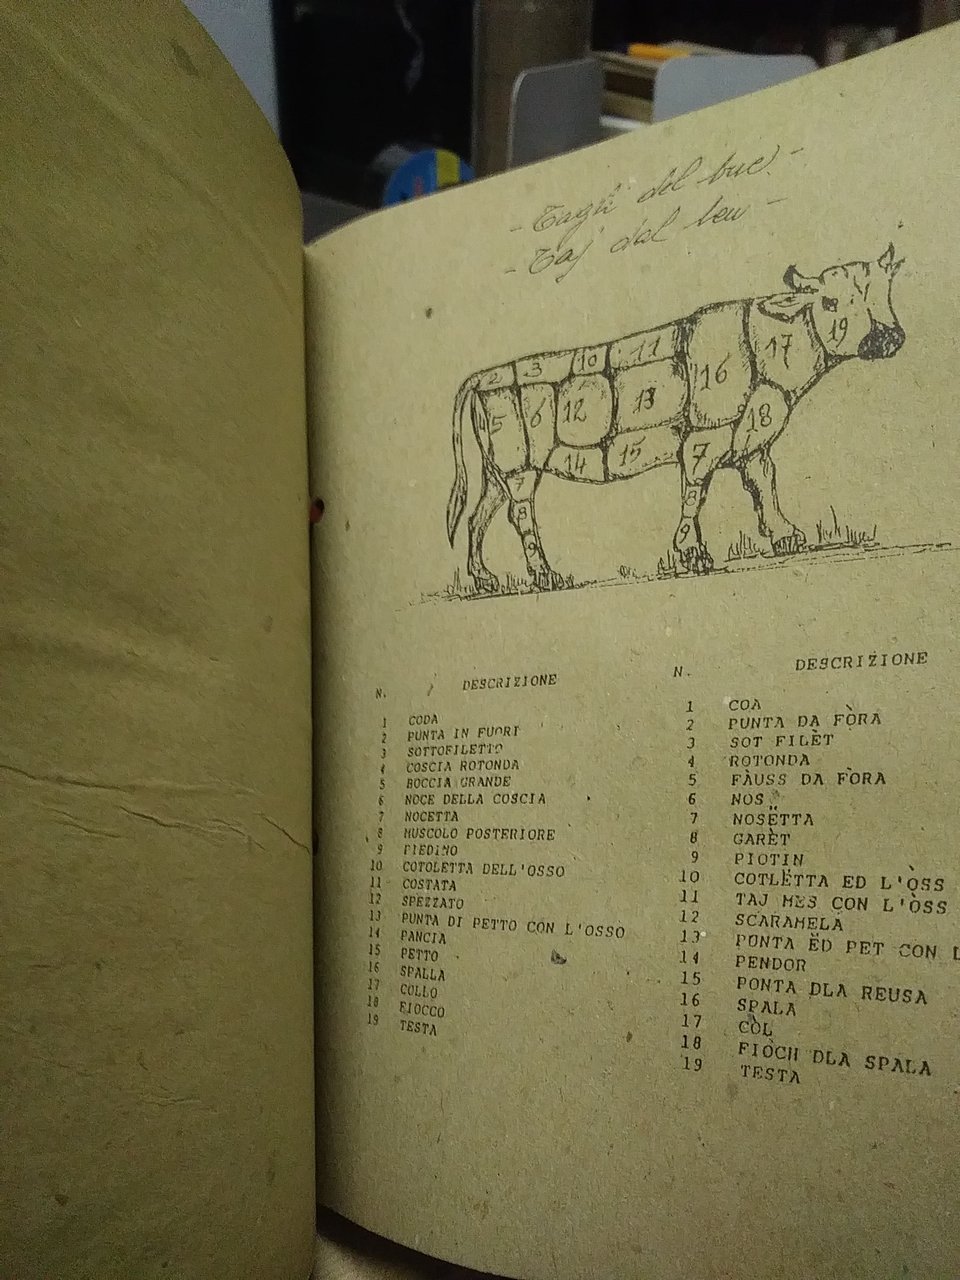 - Tagli del bue -
- Taj dal beu -
2
3
10
11
16
17
19
5
6
12
13
18
14
15
7
7
8
8
9
9
N. DESCRIZIONE
1 CODA
2 PUNTA IN FUORI
3 SOTTOFILETTO
4 COSCIA ROTONDA
5 BOCCIA GRANDE
6 NOCE DELLA COSCIA
7 NOCETTA
8 MUSCOLO POSTERIORE
9 PIEDINO
10 COTOLETTA DELL'OSSO
11 COSTATA
12 SPEZZATO
13 PUNTA DI PETTO CON L'OSSO
14 PANCIA
15 PETTO
16 SPALLA
17 COLLO
18 FIOCCO
19 TESTA
N. DESCRIZIONE
1 COA
2 PUNTA DA FÒRA
3 SOT FILÈT
4 ROTONDA
5 FÀUSS DA FÒRA
6 NOS
7 NOSËTTA
8 GARÈT
9 PIOTIN
10 COTLËTTA ED L'ÒSS
11 TAJ MES CON L'ÒSS
12 SCARAMELA
13 PONTA ËD PET CON L
14 PENDOR
15 PONTA DLA REUSA
16 SPALA
17 CÒL
18 FIÒCH DLA SPALA
19 TESTA